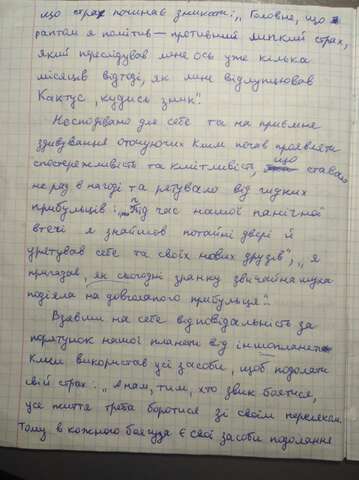 що страх починав зникати: „ Головне, що я
раптом я помітив — противний липкий страх,
який переслідував мене ось уже кілька
місяців відтоді, як мене відлупцював
Кактус, кудись зник".
Несподівано для себе та на приємне
здивування оточуючих Клим почав проявляти
спостережливість та кмітливість, що ставало
не раз в нагоді та рятувало від гидких
прибульців: „Під час нашої панічної
втечі я знайшов потайні двері й
урятував себе та своїх нових друзів", „ я
пригадав, як сьогодні зранку звичайна муха
подіяла на довголапого прибульця".
Взявши на себе відповідальність за
порятунок нашої планети від іншопланетян
Клим використав усі засоби, щоб подолати
свій страх: „А нам, тим, хто звик боятися,
усе життя треба боротися зі своїм переляком.
Тому в кожного боягуза є свої засоби подолання